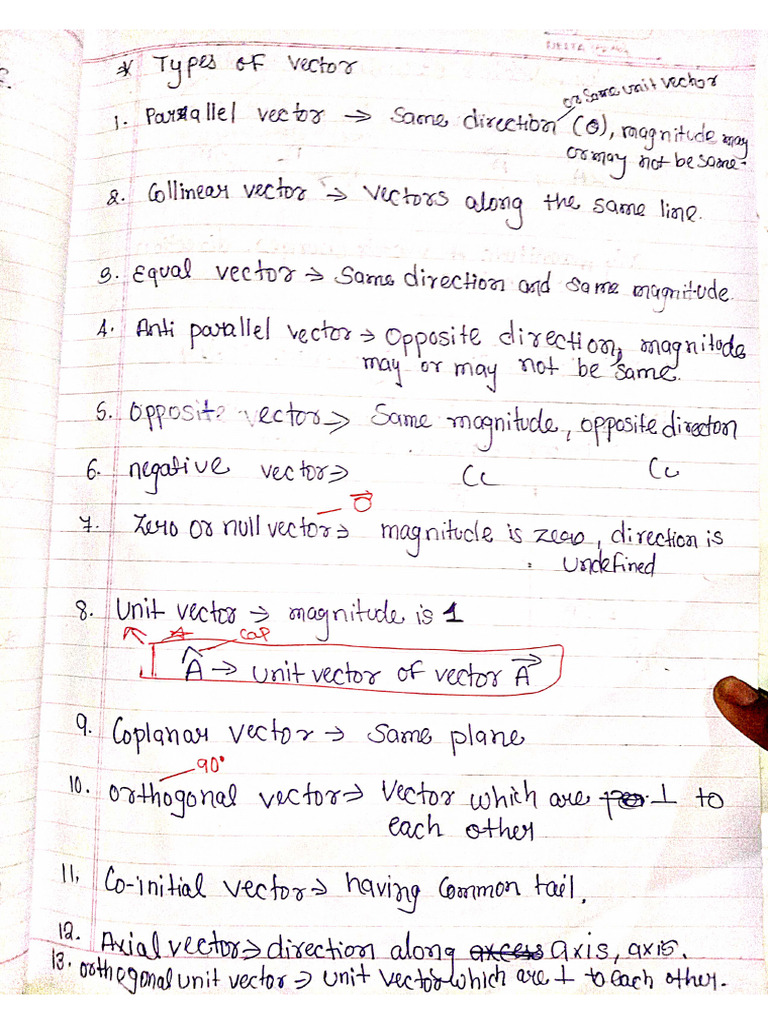 * Types of vector
or same unit vector
1. Parallel vector → same direction (θ), magnitude may
or may not be same.
2. Collinear vector → vectors along the same line.
3. Equal vector → same direction and same magnitude.
4. Anti parallel vector → opposite direction, magnitude
may or may not be same.
5. Opposite vector → same magnitude, opposite directon
6. negative vector → Cc Cc
7. Zero or null vector → magnitude is zero, direction is
undefined
— O⃗
8. Unit vector → magnitude is 1
cap
Â → unit vector of vector A⃗
9. Coplanar vector → same plane
90°
10. orthogonal vector → vector which are ⊥ to
each other
11. Co-initial vector → having common tail.
12. Axial vector → direction along axis, axis.
13. orthogonal unit vector → unit vector which are ⊥ to each other.